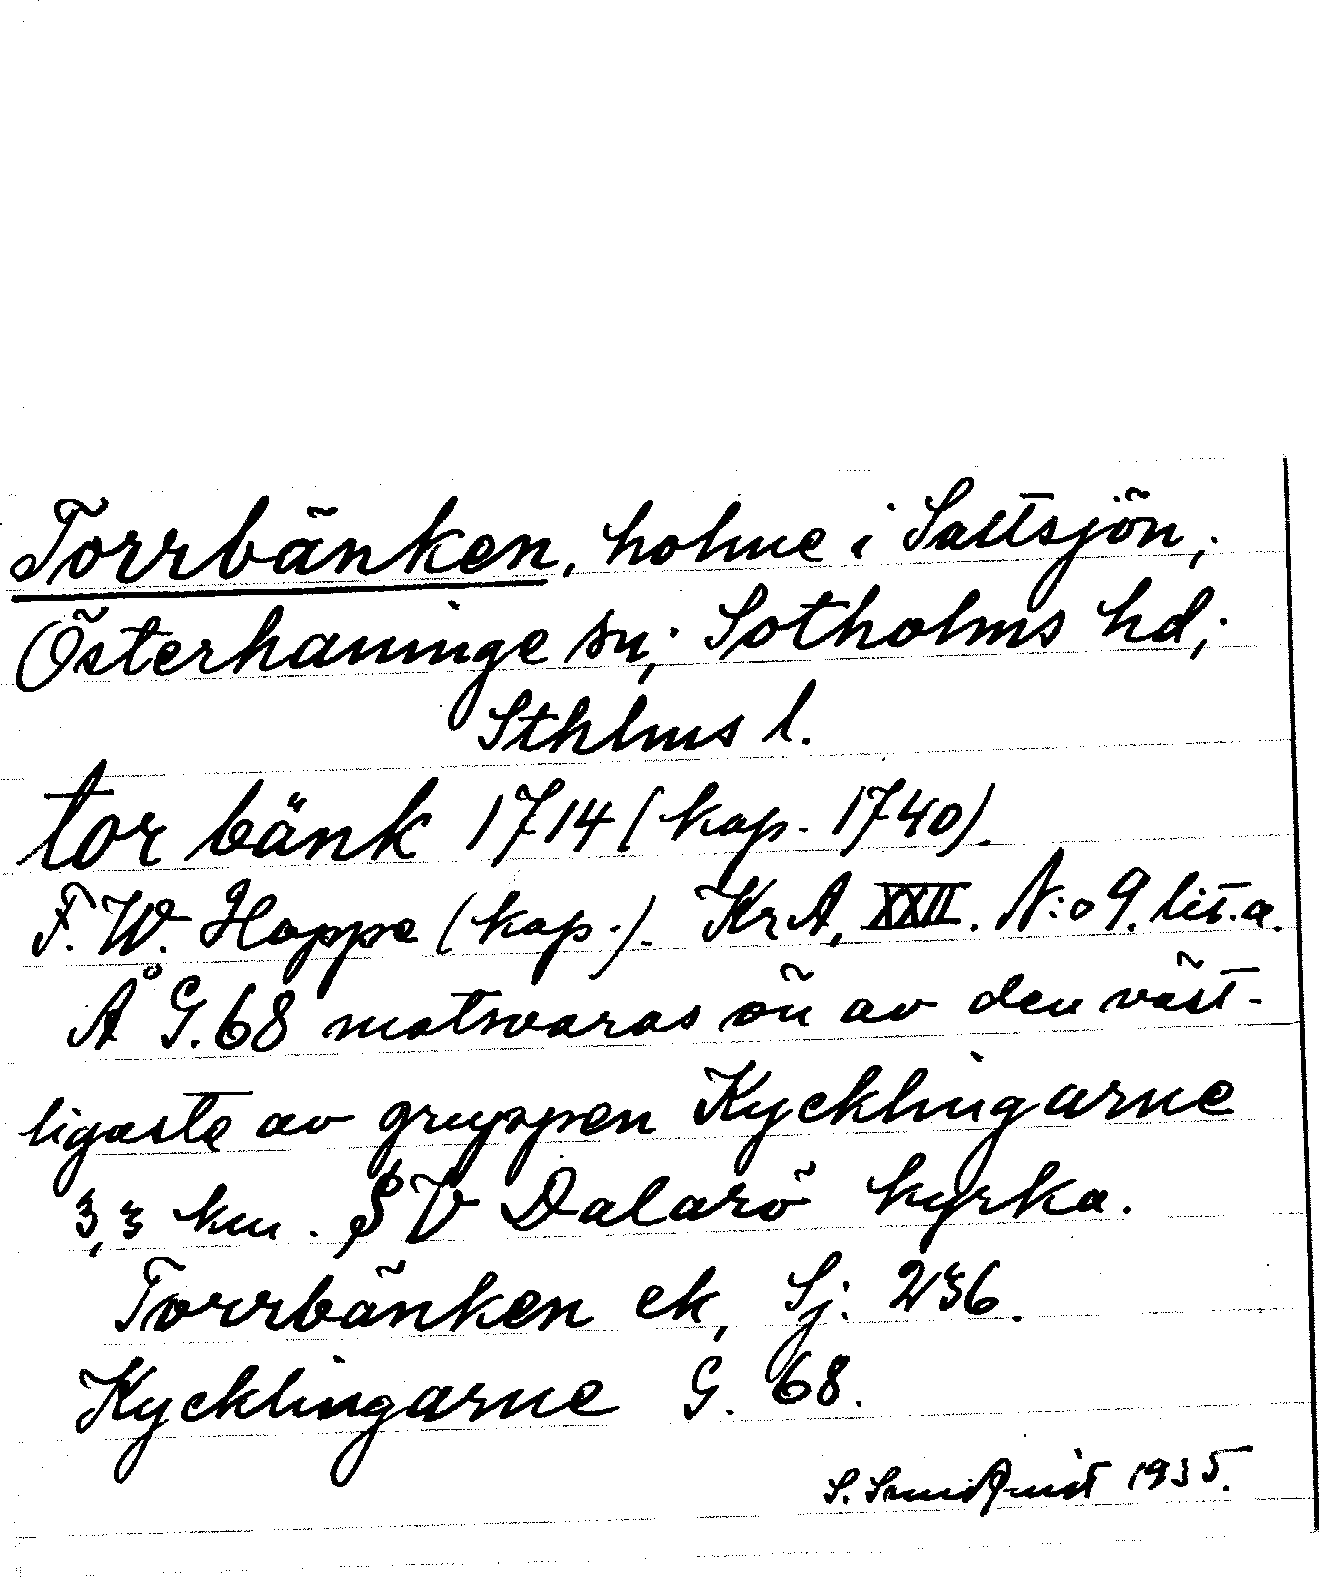 Torrbänken, holme i Saltsjön;
Österhaninge sn; Sotholms hd;
Sthlms l.
tor bänk 1714 (kop. 1740).
F. W. Hoppe (kop.). KrA, XXII. N:o 9. lit. a.
Å G. 68 motsvaras ön av den väst-
ligaste av gruppen Kycklingarne
3,3 km. SV Dalarö kyrka.
Torrbänken ek, Sj. 236.
Kycklingarne G. 68.
S. Sundquist 1935.